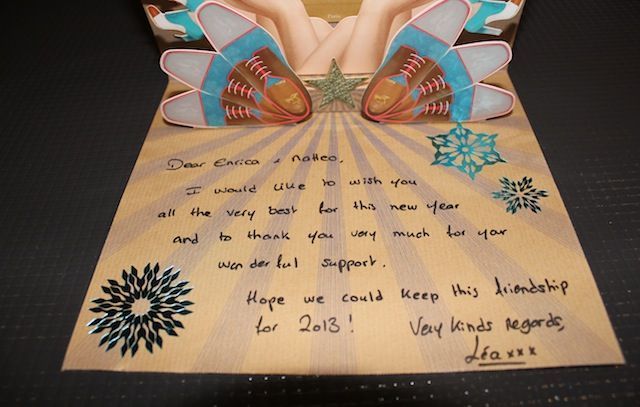 Dear Enrica & Matteo,
I would like to wish you
all the very best for this new year
and to thank you very much for your
wonderful support.
Hope we could keep this friendship
for 2013!
Very kinds regards,
Léa xxx